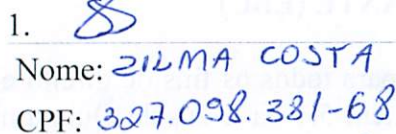 1.
Nome: ZILMA COSTA
CPF: 327.098.381-68